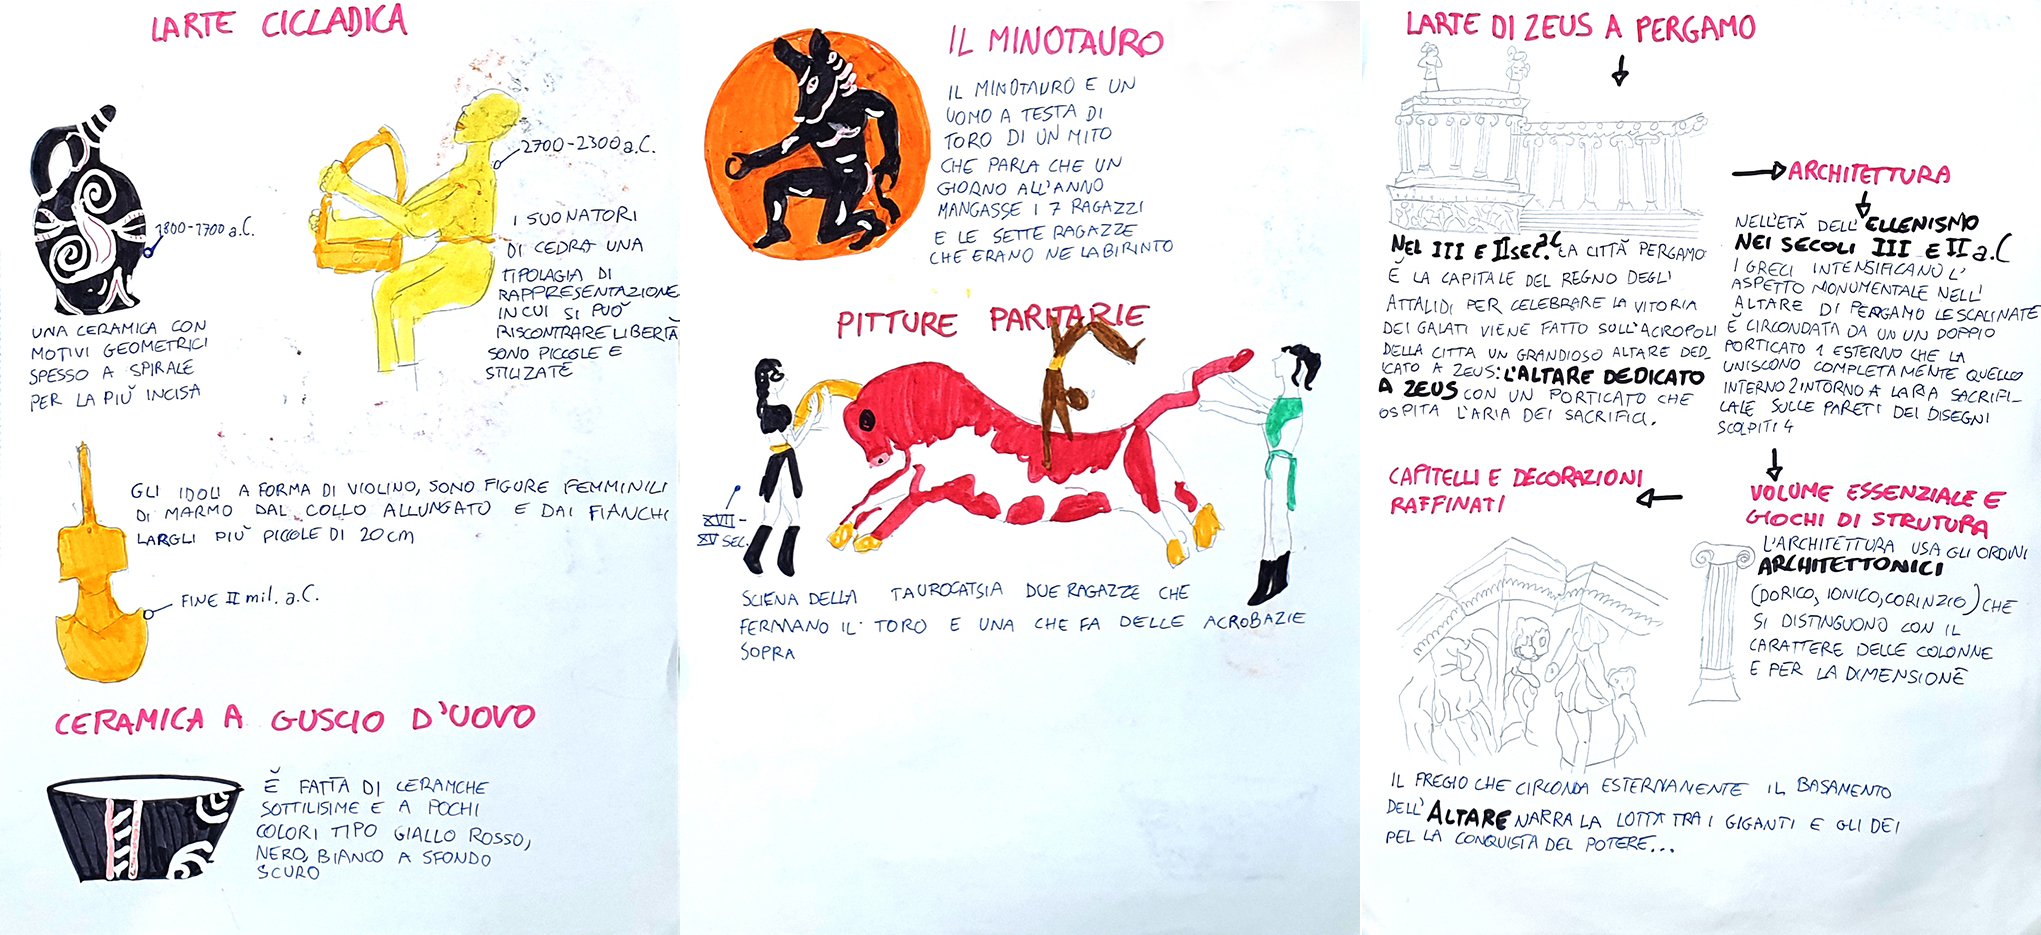 LARTE CICLADICA
2700-2300 a.C.
1800-1700 a.C.
I SUONATORI
DI CEDRA UNA
TIPOLAGIA DI
RAPPRESENTAZIONE
IN CUI SI PUÒ
RISCONTRARE LIBERTÀ
SONO PICCOLE E
STILIZATE
UNA CERAMICA CON
MOTIVI GEOMETRICI
SPESSO A SPIRALE
PER LA PIÙ INCISA
GLI IDOLI A FORMA DI VIOLINO, SONO FIGURE FEMMINILI
DI MARMO DAL COLLO ALLUNGATO E DAI FIANCHI
LARGLI PIÙ PICCOLE DI 20 cm
FINE II mil. a.C.
CERAMICA A GUSCIO D'UOVO
È FATTA DI CERAMCHE
SOTTILISIME E A POCHI
COLORI TIPO GIALLO ROSSO,
NERO, BIANCO A SFONDO
SCURO
IL MINOTAURO
IL MINOTAURO E UN
UOMO A TESTA DI
TORO DI UN MITO
CHE PARLA CHE UN
GIORNO ALL'ANNO
MANGASSE I 7 RAGAZZI
E LE SETTE RAGAZZE
CHE ERANO NE LABIRINTO
PITTURE PARITARIE
XVII-
XV SEC.
SCIENA DELLA TAUROCATSIA DUE RAGAZZE CHE
FERMANO IL TORO E UNA CHE FA DELLE ACROBAZIE
SOPRA
LARTE DI ZEUS A PERGAMO
NEL III E II SEC. a.C LA CITTÀ PERGAMO
È LA CAPITALE DEL REGNO DEGLI
ATTALIDI PER CELEBRARE LA VITORIA
DEI GALATI VIENE FATTO SULL'ACROPOLI
DELLA CITTA UN GRANDIOSO ALTARE DED_
ICATO A ZEUS: L'ALTARE DEDICATO
A ZEUS CON UN PORTICATO CHE
OSPITA L'ARIA DEI SACRIFICI.
ARCHITETTURA
NELL'ETÀ DELL'ELLENISMO
NEI SECOLI III E II a.C
I GRECI INTENSIFICANO L'
ASPETTO MONUMENTALE NELL'
ALTARE DI PERGAMO LE SCALINATE
È CIRCONDATA DA UN UN DOPPIO
PORTICATO 1 ESTERNO CHE LA
UNISCONO COMPLETAMENTE QUELLO
INTERNO 2 INTORNO A LARIA SACRIFI_
CALE SULLE PARETI DEI DISEGNI
SCOLPITI 4
VOLUME ESSENZIALE E
GIOCHI DI STRUTURA
L'ARCHITETTURA USA GLI ORDINI
ARCHITETTONICI
(DORICO, IONICO, CORINZIO) CHE
SI DISTINGUONO CON IL
CARATTERE DELLE COLONNE
E PER LA DIMENSIONE
CAPITELLI E DECORAZIONI
RAFFINATI
IL FREGIO CHE CIRCONDA ESTERNAMENTE IL BASAMENTO
DELL'ALTARE NARRA LA LOTTA TRA I GIGANTI E GLI DEI
PEL LA CONQUISTA DEL POTERE...